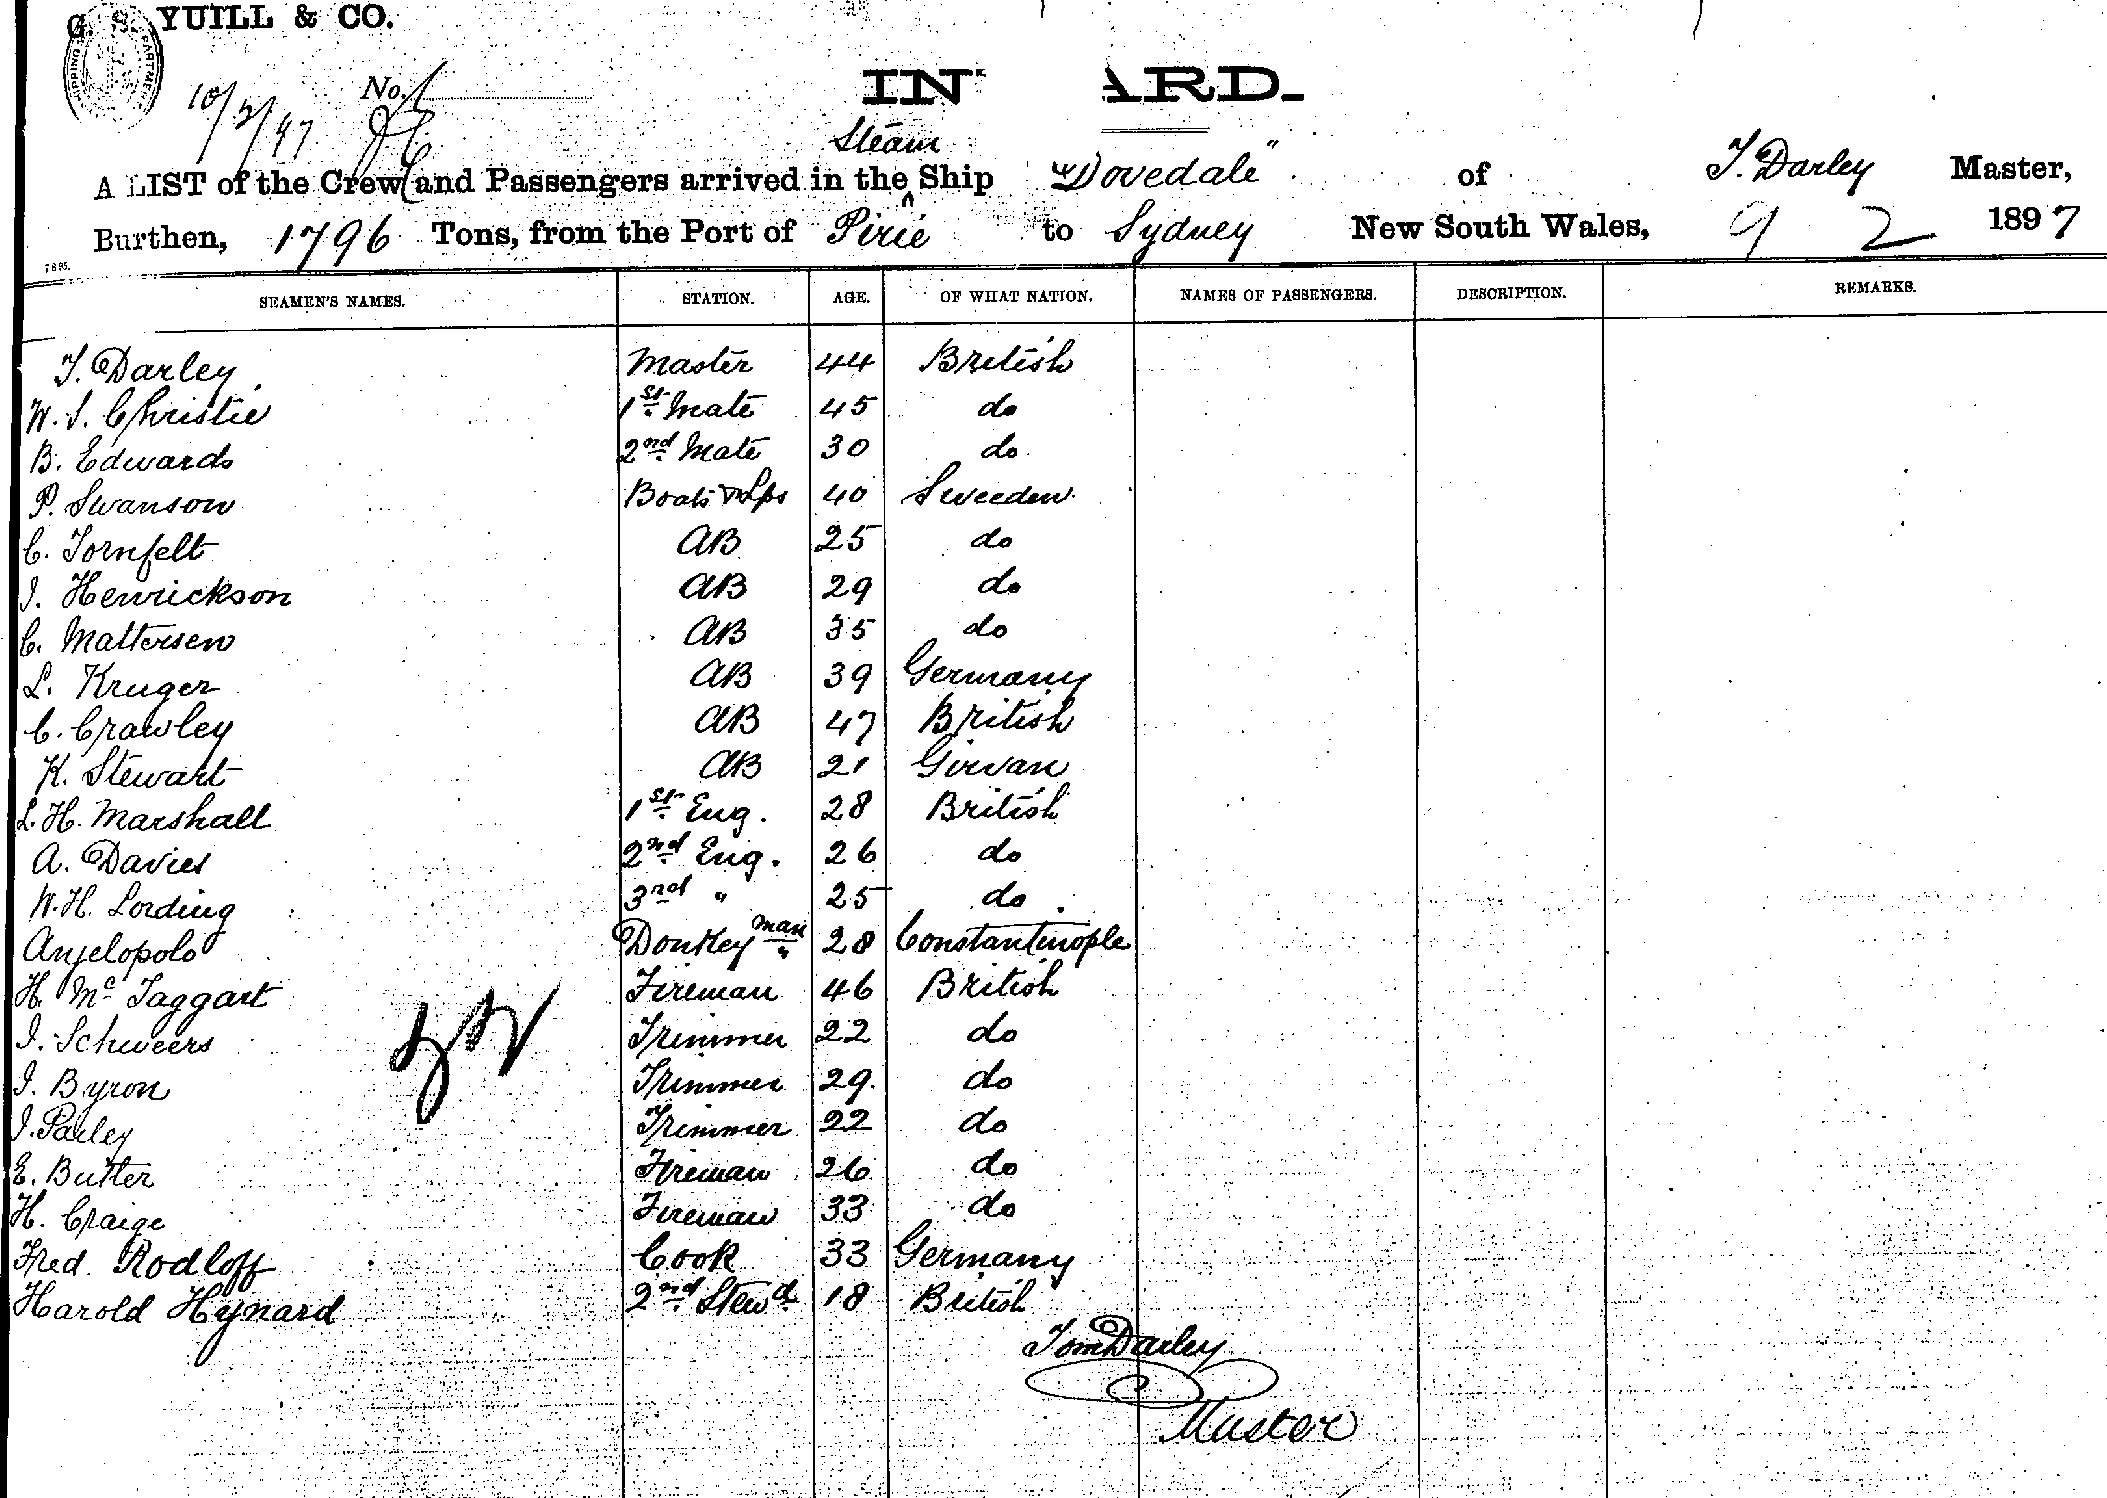 G. S. YUILL & CO.
10/2/97 No. 1
INWARD.
Steam
A LIST of the Crew and Passengers arrived in the Ship "Dovedale" of T. Darley Master,
Burthen, 1796 Tons, from the Port of Pirie to Sydney New South Wales, 9 2 1897
7695.
SEAMEN'S NAMES. STATION. AGE. OF WHAT NATION. NAMES OF PASSENGERS. DESCRIPTION. REMARKS.
T. Darley Master 44 British
W. S. Christie 1st Mate 45 do
B. Edwards 2nd Mate 30 do
P. Swanson Boats & Lps 40 Sweeden
C. Tornfelt AB 25 do
J. Henrickson AB 29 do
C. Mattersen AB 35 do
L. Kruger AB 39 Germany
C. Crawley AB 47 British
K. Stewart AB 21 Girvan
L. H. Marshall 1st Eng. 28 British
A. Davies 2nd Eng. 26 do
W. H. Lording 3rd " 25 do
Anjelopolo Donkey man 28 Constantinople
H. McTaggart Fireman 46 British
J. Schweers Trimmer 22 do
J. Byron Trimmer 29 do
J. Parley Trimmer 22 do
E. Butler Fireman 26 do
H. Craige Fireman 33 do
Fred. Rodloff Cook 33 Germany
Harold Hynard 2nd Stewd 18 British
Tom Darley
Master